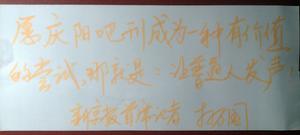 愿庆阳吧刊成为一种有价值
的尝试,那就是:让普通人发声
新京报首席记者